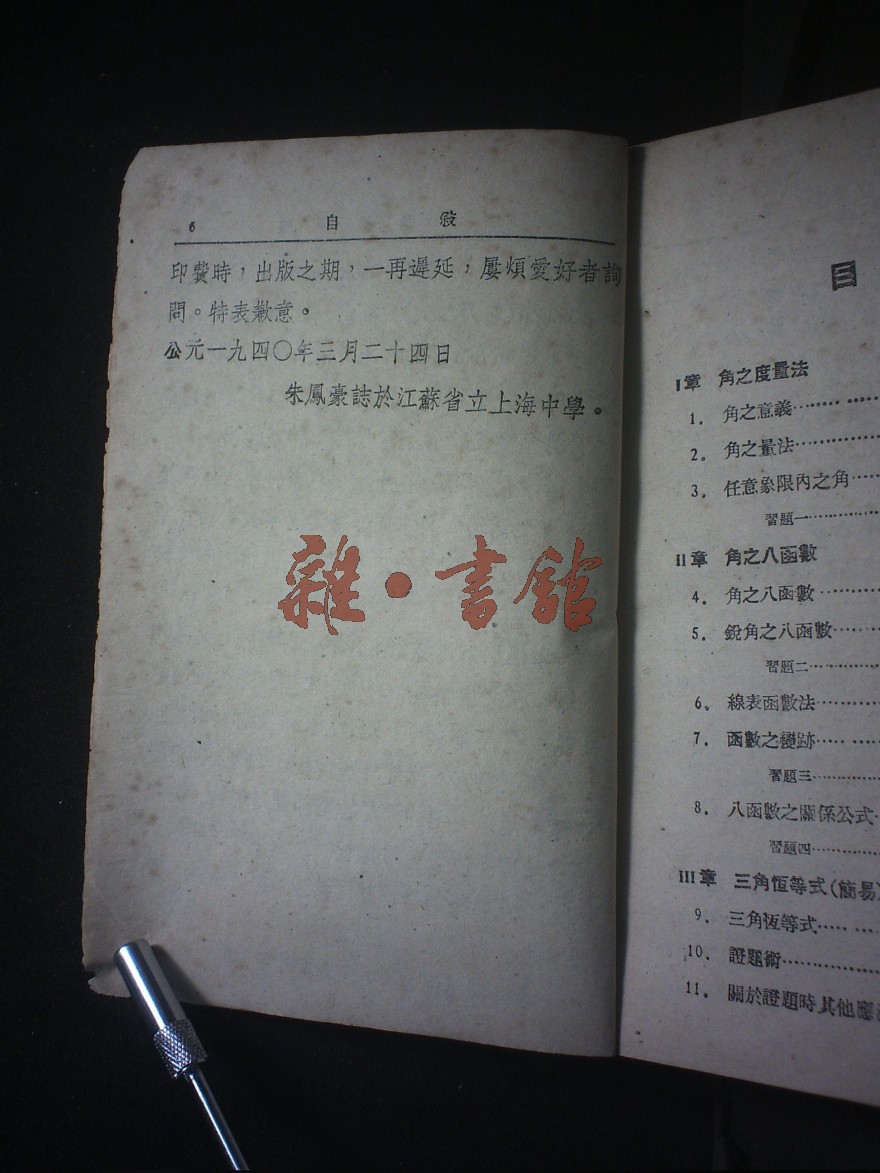 6 自 敘
印費時，出版之期，一再遲延，屢煩愛好者詢
問。特表歉意。
公元一九四〇年三月二十四日
朱鳳豪誌於江蘇省立上海中學。
雜·書館
目
I章 角之度量法
1. 角之意義
2. 角之量法
3. 任意象限內之角
習題一
II章 角之八函數
4. 角之八函數
5. 銳角之八函數
習題二
6. 線表函數法
7. 函數之變跡
習題三
8. 八函數之關係公式
習題四
III章 三角恆等式(簡易)
9. 三角恆等式
10. 證題術
11. 關於證題時其他應